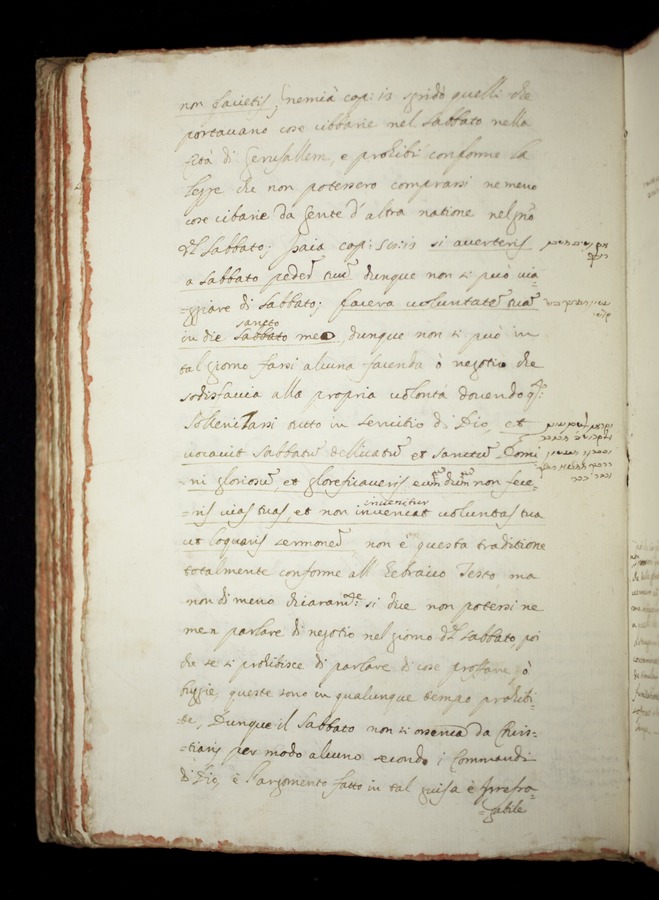 non facietis, Nemia cap: 13 sgridò quelli che
portauano cose cibbarie nel Sabbato nella
Cità di Gerusallem, e prohibi conforme la
legge che non potessero comprarsi ne meno
cose cibarie da Gente d'altra natione nel
del Sabbato; Isaia cap: si averteris
a sabbato pedem tuum dunque non si può via=
=ggiare di Sabbato; facere voluntatem tuam
in die Sabbato sancto meo, dunque non si può in
tal giorno farsi alcuna facenda ò negotio che
sodisfaccia alla propria volontà douendo
sollenizarsi tutto in seruitio di Dio, et
vocauit sabbatum dellicatum et sanctum Domi
=ni gloriosum, et glorificaveris eum dum non fece=
=ris vias tuas, et non inveniat invenitur voluntas tua
ut loquaris sermonem, non è questa traditione
totalmente conforme all Hebraico Testo, ma
non di meno si dice non potersi ne
men parlare di negotio nel giorno del Sabbato, poi
che se si prohibisce di parlare di cose proffane, ò
buggie, queste sono in qualunque tempo prohibi=
=te, Dunque il Sabbato non si osserva da Chris=
=tiani per modo alcuno secondo i Commandi
di Dio, e l'argomento fatto in tal guisa è Irrefra=
=gabile